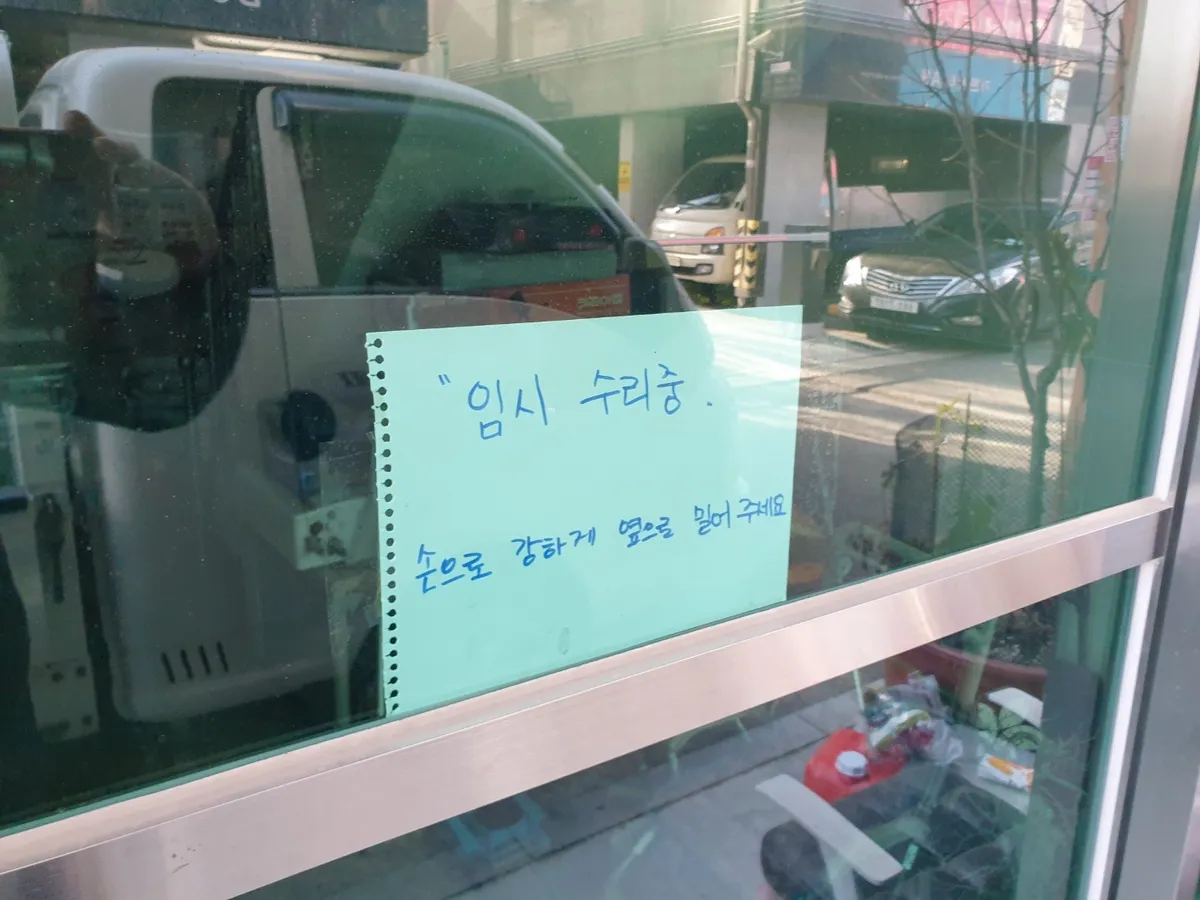 " 임시 수리중.
손으로 강하게 옆으로 밀어 주세요